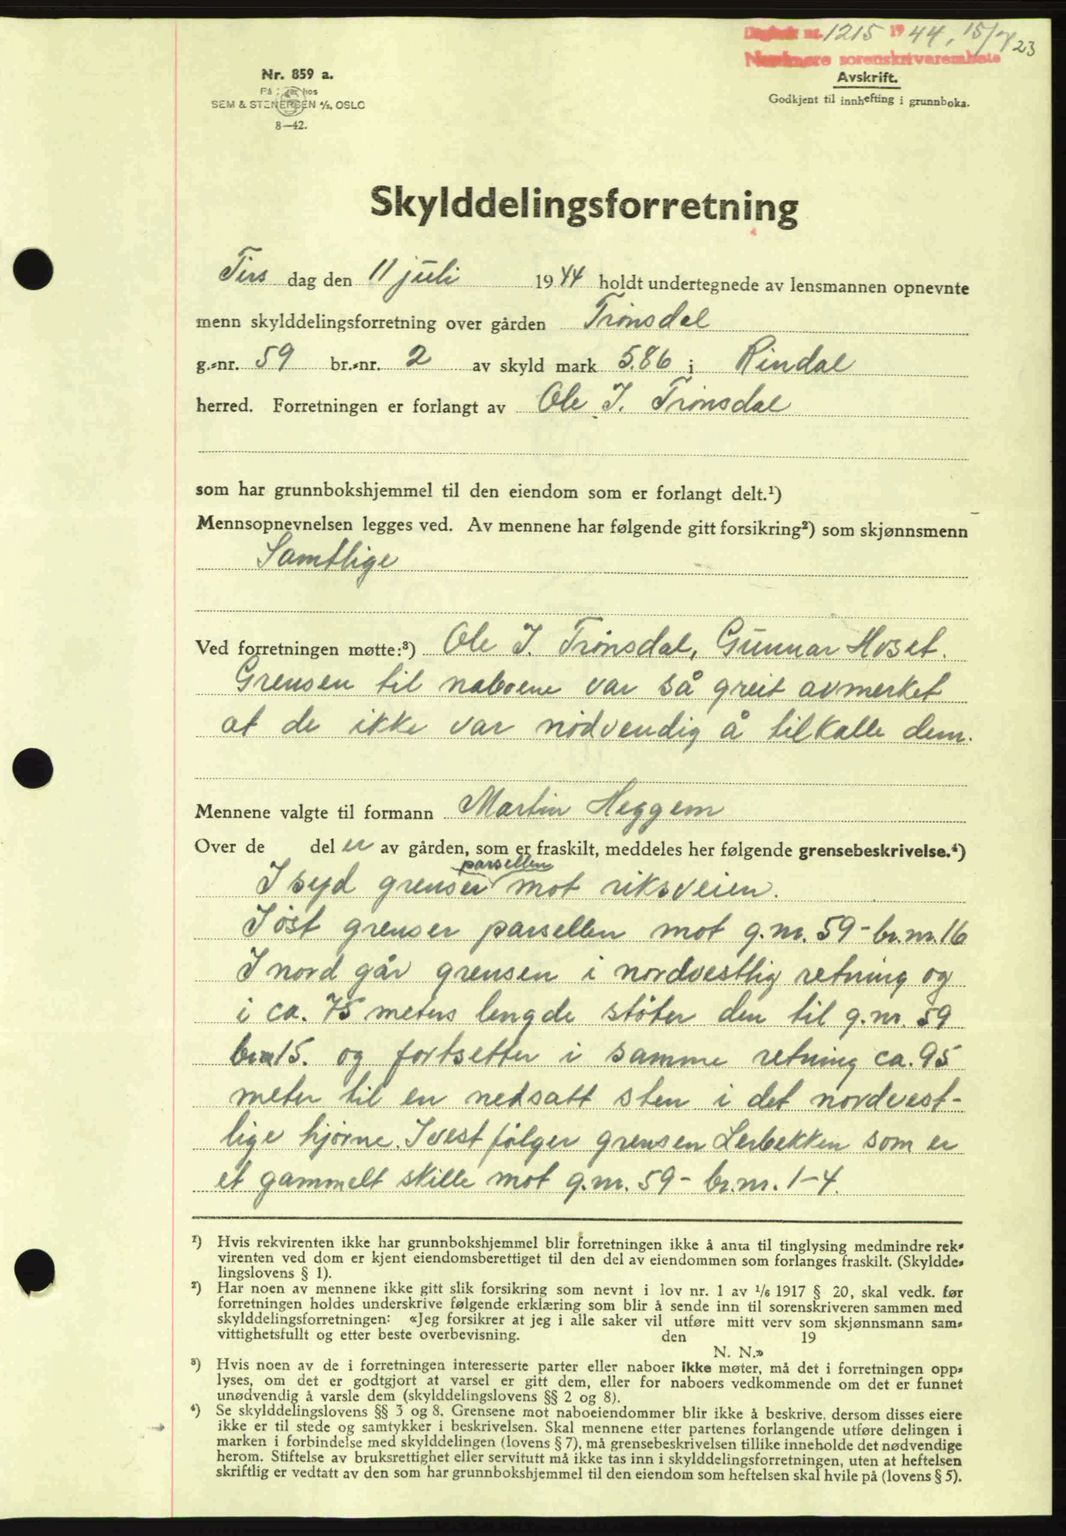 Dagbok nr. 1215 1944, 15/7 23
Nordmøre sorenskriverembete
Nr. 859 a.
SEM & STENERSEN A/S, OSLO
8—42.
Avskrift.
Godkjent til innhefting i grunnboka.
Skylddelingsforretning
Tirs dag den 11 juli 1944 holdt undertegnede av lensmannen opnevnte
menn skylddelingsforretning over gården Trønsdal
g.-nr. 59 br.-nr. 2 av skyld mark 5.86 i Rindal
herred. Forretningen er forlangt av Ole J. Trønsdal
som har grunnbokshjemmel til den eiendom som er forlangt delt.¹)
Mennsopnevnelsen legges ved. Av mennene har følgende gitt forsikring²) som skjønnsmenn
Samtlige
Ved forretningen møtte:³) Ole J. Trønsdal, Gunnar Hoset.
Grensen til naboene var så greit avmerket
at de ikke var nødvendig å tilkalle dem.
Mennene valgte til formann Martin Heggem
Over de del er av gården, som er fraskilt, meddeles her følgende grensebeskrivelse.⁴)
parsellen
I syd grenser mot riksveien.
I øst grenser parsellen mot g.nr. 59 - br.nr. 16
I nord går grensen i nordvestlig retning og
i ca. 75 meters lengde støter den til g.nr. 59
br.nr 15. og fortsetter i samme retning ca. 95
meter til en nedsatt sten i det nordvest-
lige hjørne. I vest følger grensen Lerbekken som er
et gammelt skille mot g.nr. 59 - br.nr. 1-4.
¹) Hvis rekvirenten ikke har grunnbokshjemmel blir forretningen ikke å anta til tinglysing medmindre rek-
virenten ved dom er kjent eiendomsberettiget til den del av eiendommen som forlanges fraskilt. (Skyldde-
lingslovens § 1).
²) Har noen av mennene ikke gitt slik forsikring som nevnt i lov nr. 1 av 1/6 1917 § 20, skal vedk. før
forretningen holdes underskrive følgende erklæring som blir å sende inn til sorenskriveren sammen med
skylddelingsforretningen: «Jeg forsikrer at jeg i alle saker vil utføre mitt verv som skjønnsmann sam-
vittighetsfullt og etter beste overbevisning. den 19
N. N.»
³) Hvis noen av de i forretningen interesserte parter eller naboer ikke møter, må det i forretningen opp-
lyses, om det er godtgjort at varsel er gitt dem, eller for naboers vedkommende om det er funnet
unødvendig å varsle dem (skylddelingslovens §§ 2 og 8).
⁴) Se skylddelingslovens §§ 3 og 8. Grensene mot naboeiendommer blir ikke å beskrive, dersom disses eiere
ikke er til stede og samtykker i beskrivelsen. Skal mennene etter partenes forlangende utføre delingen i
marken i forbindelse med skylddelingen (lovens § 7), må grensebeskrivelsen tillike inneholde det nødvendige
herom. Stiftelse av bruksrettighet eller servitutt må ikke tas inn i skylddelingsforretningen, uten at heftelsen
skriftlig er vedtatt av den som har grunnbokshjemmel til den eiendom som heftelsen skal hvile på (lovens § 5).